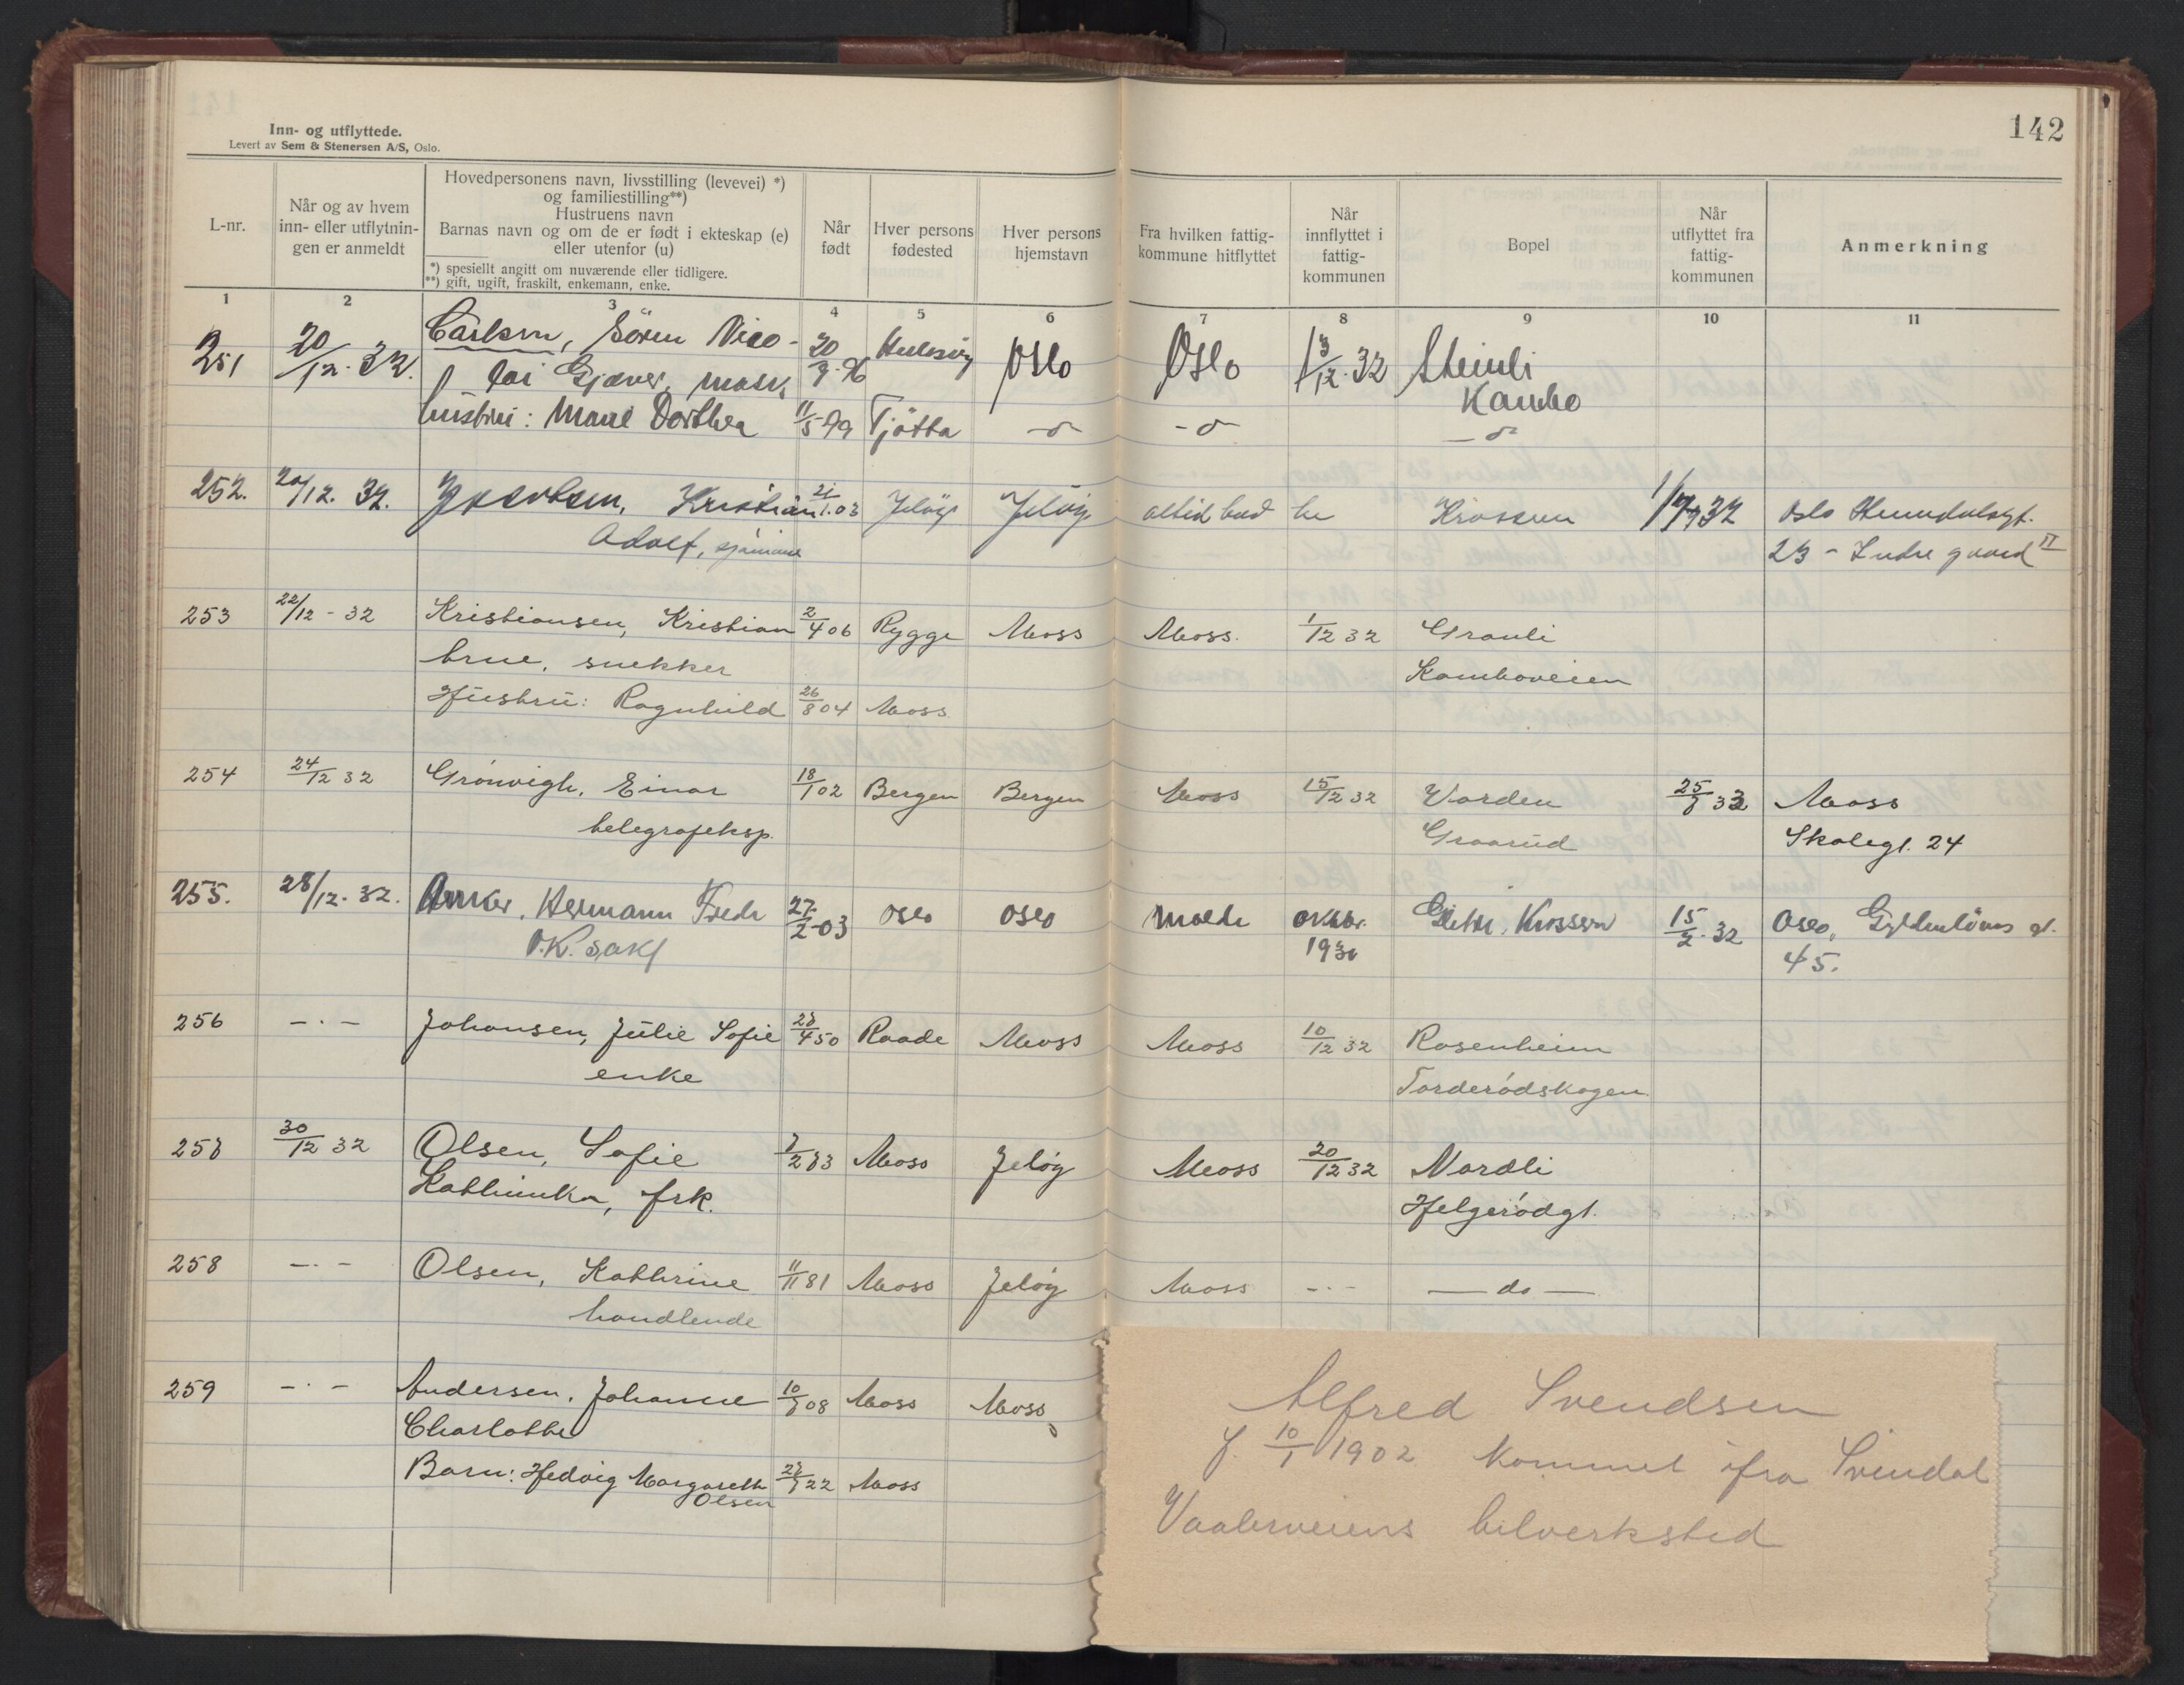 142
Inn- og utflyttede.
Levert av Sem & Stenersen A/S, Oslo.
L-nr.
Når og av hvem
inn- eller utflytnin-
gen er anmeldt
Hovedpersonens navn, livsstilling (levevei) *)
og familiestilling**)
Hustruens navn
Barnas navn og om de er født i ekteskap (e)
eller utenfor (u)
*) spesiellt angitt om nuværende eller tidligere.
**) gift, ugift, fraskilt, enkemann, enke.
Når
født
Hver persons
fødested
Hver persons
hjemstavn
Fra hvilken fattig-
kommune hitflyttet
Når
innflyttet i
fattig-
kommunen
Bopel
Når
utflyttet fra
fattig-
kommunen
Anmerkning
1 2 3 4 5 6 7 8 9 10 11
251 20/12.32. Carlsen, Sören Nico- Oslo Oslo 13/12.32 Steinli
lai Gjæver, Kambo
hustru: Marie Dorthea 11/5 99 Tjötta -o- -o- -o-
252. 20/12. 32. Jacobsen, Kristian 21/1.03 Jelöy Jelöy altid bod her Krossern Oslo
Adolf, sjömann 23 - Indre gaard II
253 22/12 - 32 Kristiansen, Kristian 2/4 06 Rygge Moss Moss. 1/12 32 Granli
Arne, snekker Kamboveien
Hustru: Ragnhild 26/8 04 Moss
254 24/12 32 Grönvigh, Einar 18/1 02 Bergen Bergen Moss 15/12 32 Varden 25/7 33 Moss
telegrafeksp. Graarud Skolegt. 24
255. 28/12. 32. Hermann Fredr 27/2-03 Oslo Oslo Molde oktbr. Krossern 15/2.32 Oslo, Gyldenlöves gt.
O.K.sakf 193 45.
256 -.- Johansen, Julie Sofie 27/4 50 Raade Moss Moss 10/12 32 Rosenheim
enke Torderödskogen
257 30/12 32 Olsen, Sofie 7/2 73 Moss Jelöy Moss 20/12 32 Nordli
Kathinka, frk. Helgerödgt.
258 -.- Olsen, Kathrine 11/11 81 Moss Jelöy Moss -.- - do -
handlende
259 -.- Andersen, Johanne 10/7 08 Moss Moss
Charlotte
Barn: Hedvig Margareth 27/7 22 Moss
Olsen
Alfred Svendsen
f. 10/1 1902 kommet ifra Svindal
Vaalerveiens bilverksted